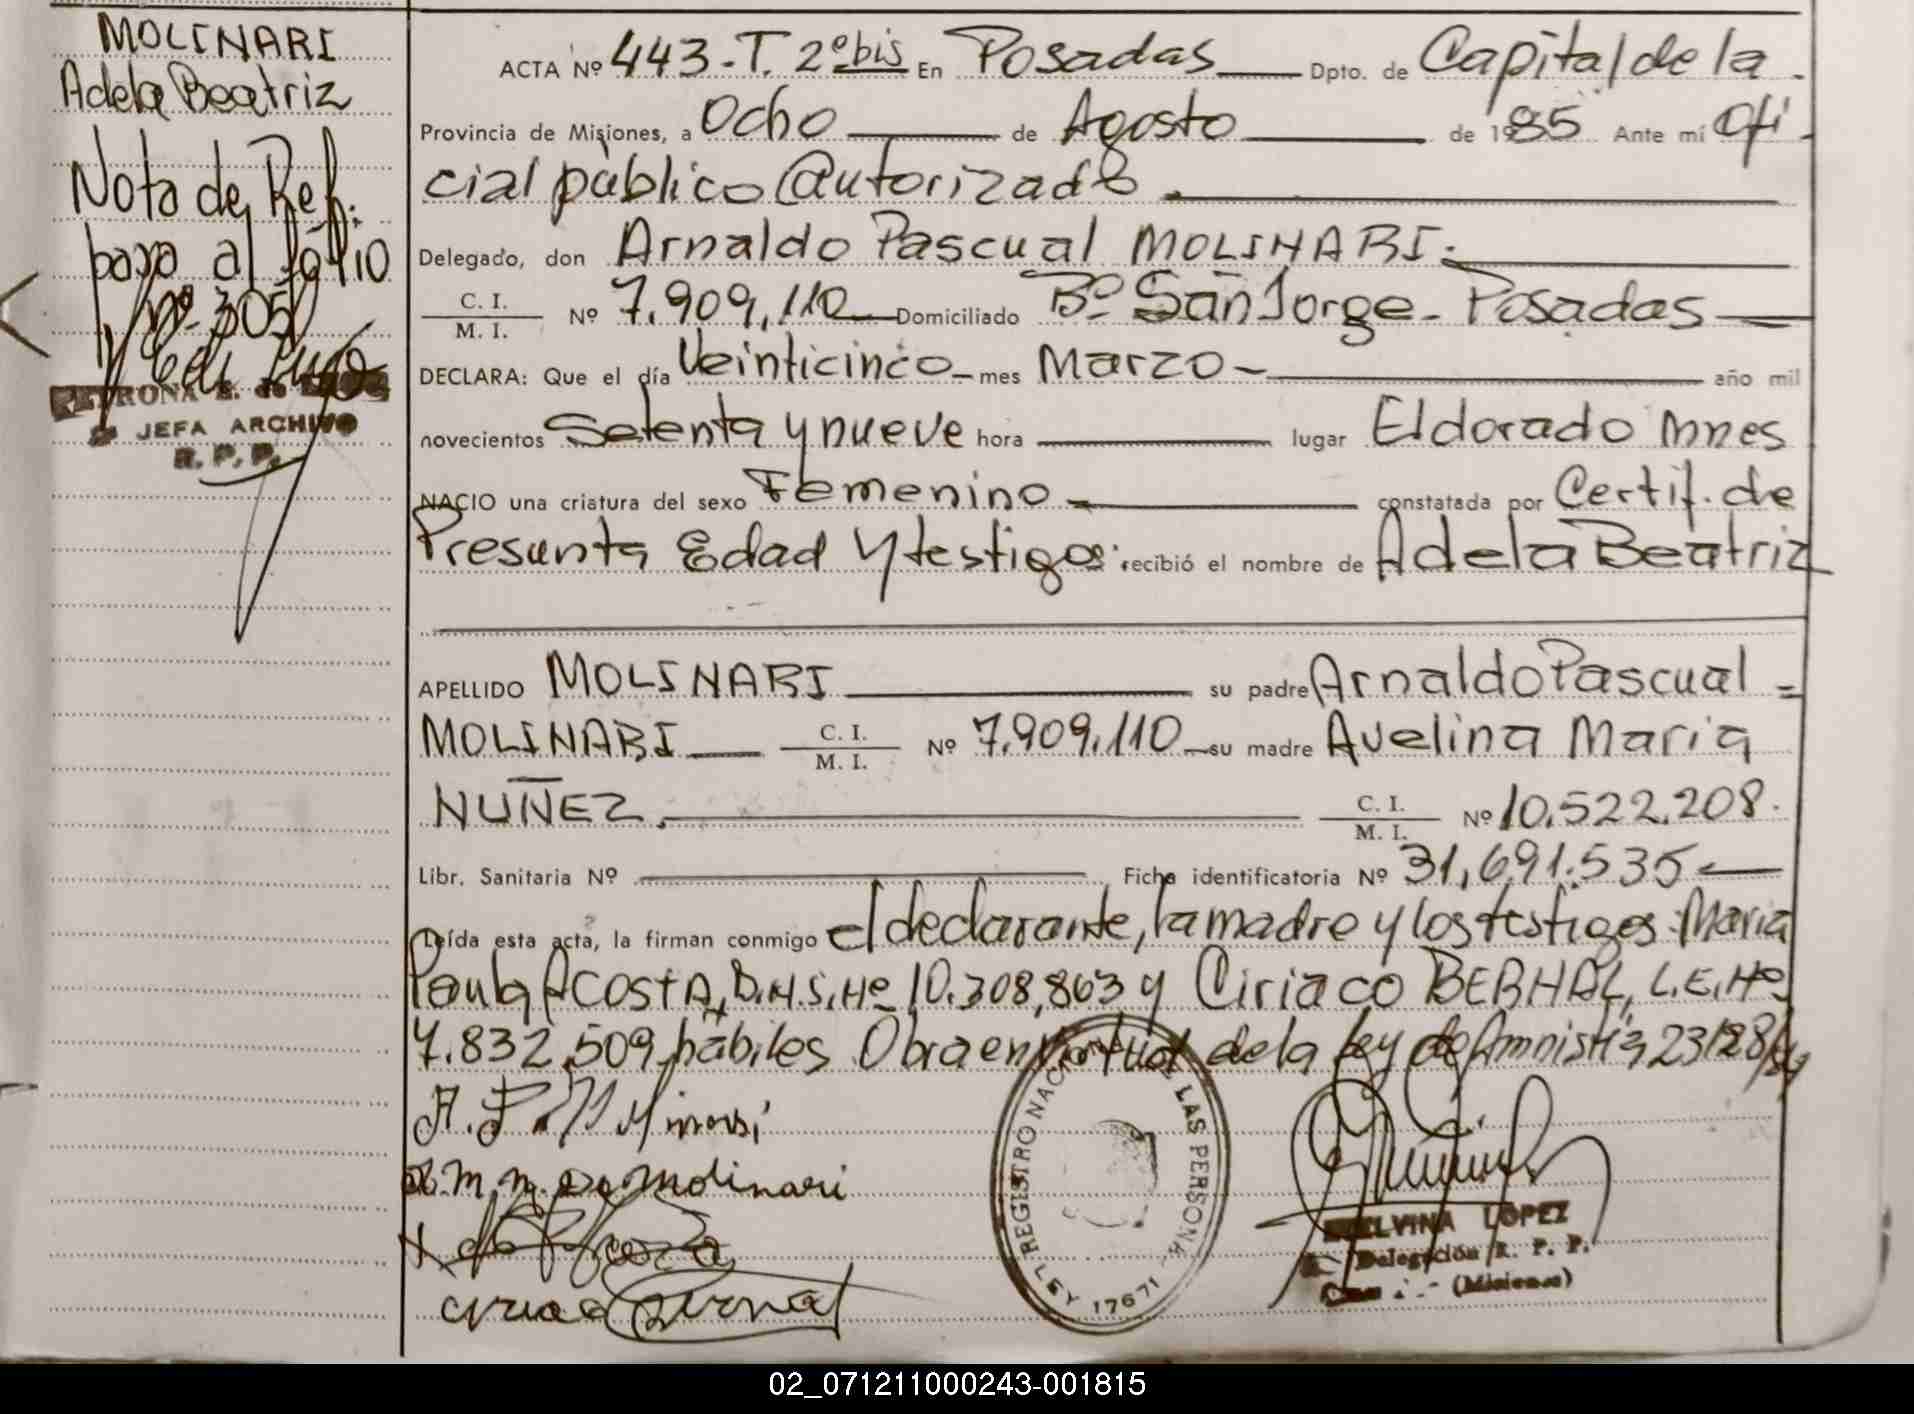 MOLINARI
Adela Beatriz
Nota de Ref.
bajo al folio
nº 305
PETRONA E. de
JEFA ARCHIVO
R. P. P.
ACTA Nº 443-T. 2º bis En Posadas Dpto. de Capital de la
Provincia de Misiones, a Ocho de Agosto de 1985 Ante mí Ofi-
cial público Autorizado.
Delegado, don Arnaldo Pascual MOLINARI.
C. I.
M. I. Nº 7.909.110 Domiciliado Bº San Jorge - Posadas
DECLARA: Que el día Veinticinco mes Marzo año mil
novecientos Setenta y nueve hora lugar Eldorado Mnes
NACIO una criatura del sexo Femenino constatada por Certif. de
Presunta Edad y testigos recibió el nombre de Adela Beatriz
APELLIDO MOLINARI su padre Arnaldo Pascual
MOLINARI C. I.
M. I. Nº 7.909.110 su madre Avelina Maria
NUÑEZ. C. I.
M. I. Nº 10.522.208.
Libr. Sanitaria Nº Ficha identificatoria Nº 31.691.535
Leída esta acta, la firman conmigo el declarante, la madre y los testigos: Maria
Paula ACOSTA, D.N.I. Nº 10.308.863 y Ciriaco BERNAL, L.E. Nº
7.832.509, hábiles Obra en virtud de la Ley de Amnistía, 23128/84
Molinari
Ciriaco Bernal
REGISTRO NAC LAS PERSONA
LEY 17671
ELVINA LOPEZ
Delegación R. P. P.
(Misiones)
02_071211000243-001815